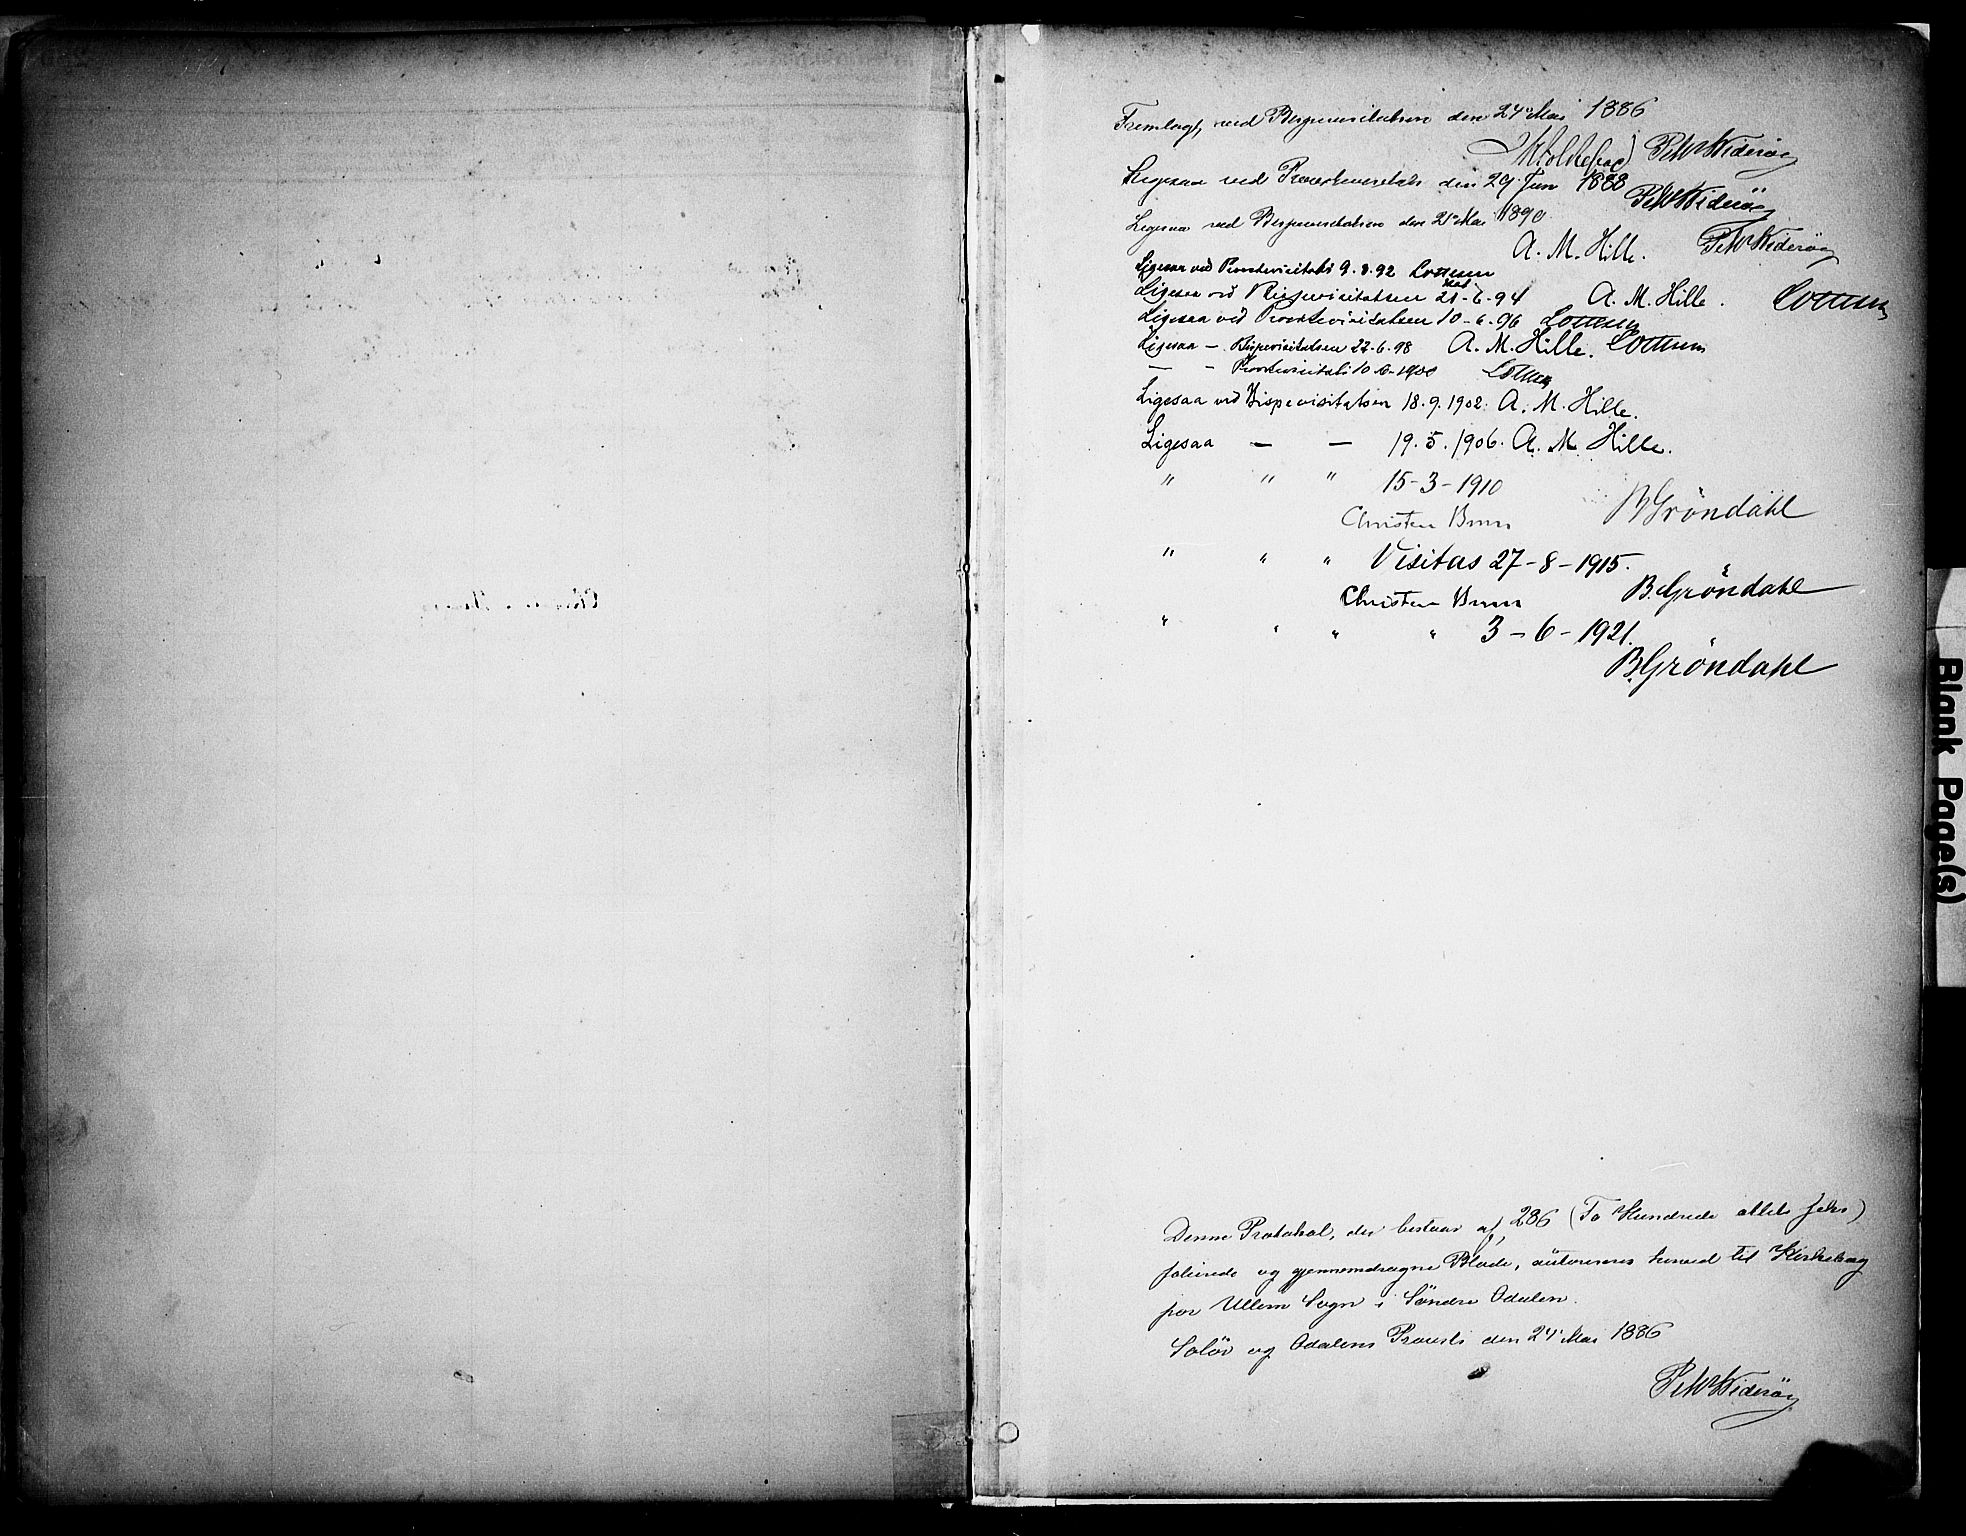 Fremlagt ved Bispevisitatsen den 24 Mai 1886
Pet W Widerøe
Ligesaa ved Provstevisitats den 29 Juni 1888
Pet W Widerøe
Ligesaa ved Bispevisitatsen den 21 Mai 1890
A. M. Hille. Pet W Widerøe
Ligesaa ved Provstevisitats 9.8.92 Lottsen
Ligesaa ved Bispevisitatsen 21-6-94 A. M. Hille. Lottsen
Ligesaa ved Provstevisitatsen 10-6-96 Lottsen
Ligesaa — Bispevisitatsen 22-6-98 A. M. Hille. Lottsen
— - Provstevisitats 10-6-1900 Lottsen
Ligesaa ved Bispevisitatsen 18.9.1902. A. M. Hille.
Ligesaa — — 19.5.1906. A. M. Hille.
" " " 15-3-1910
Christen Brun B Grøndahl
" " " Visitas 27-8-1915.
Christen Brun B. Grøndahl
" " " " 3-6-1921.
B. Grøndahl
Denne Protokol, der bestaar af 286 (To Hundrede ottti sex)
folierede og gjennemdragne Blade, autoriseres herved til Kirkebog
for Ullern Sogn i Søndre Odalen.
Solør og Odalens Provsti den 24 Mai 1886
Pet W Widerøe
Blank Page(s)